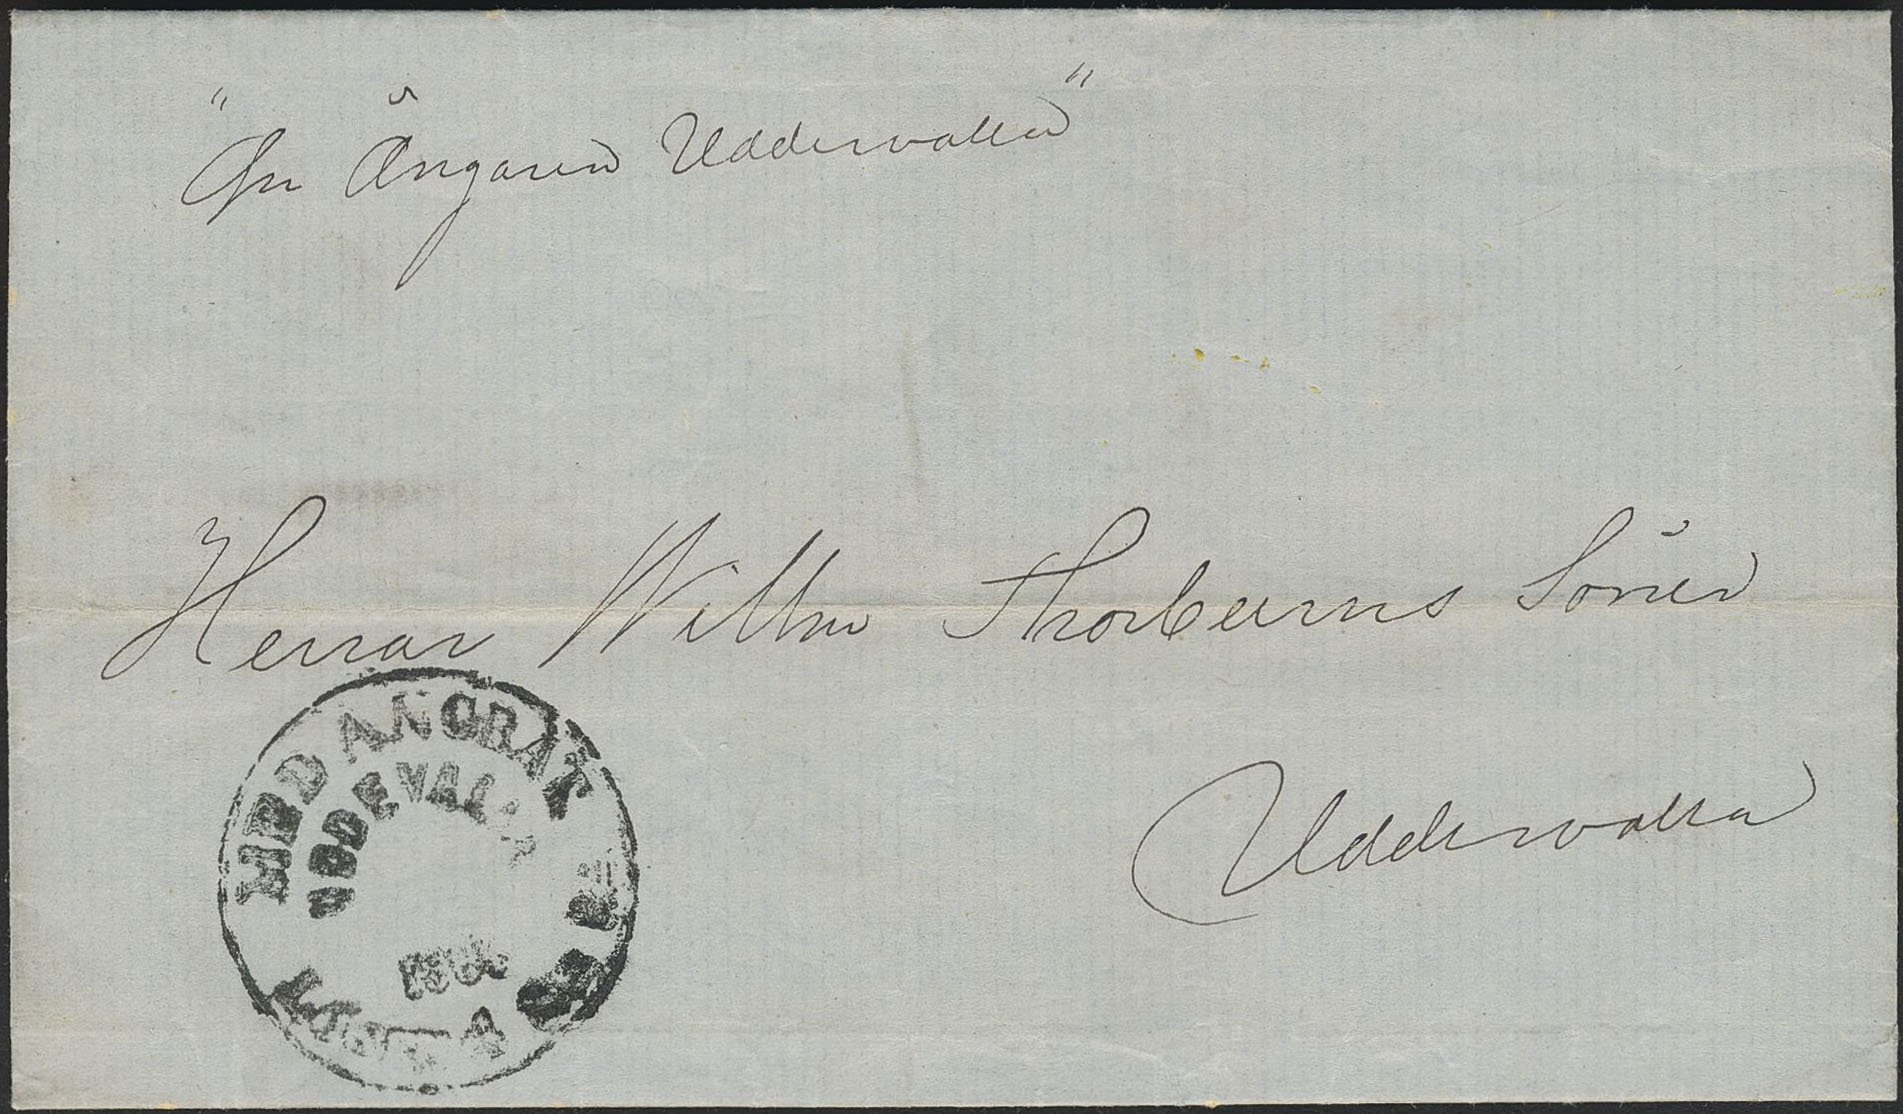 "Pr Ångaren Uddervalla"
Herrar Willm Thorburns Söner
Uddervalla
MED ÅNGBÅT
UDDEVALLA